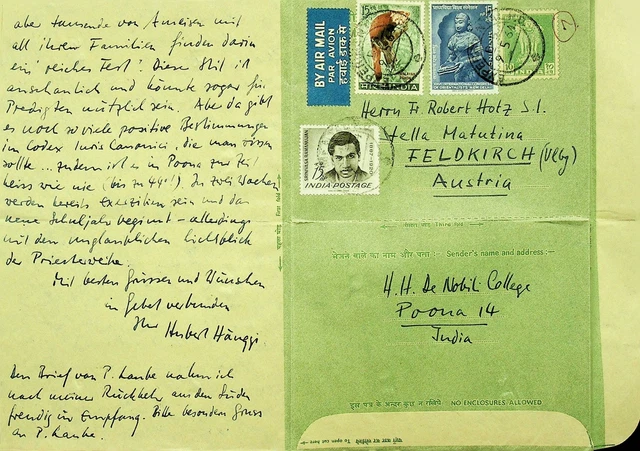 aber tausende von Ameisen mit
all ihren Familien finden darin
ein reiches Fest! Dieser Stil ist
anschaulich und könnte sogar für
Predigten nützlich sein. Aber da gibt
es noch so viele positive Bestimmungen
im Codex Iuris Canonici, die man wissen
sollte ... zudem ist es in Poona zur Zeit
heiss wie nie (bis zu 44°!). In zwei Wochen
werden bereits Exerzitien sein und das
neue Schuljahr beginnt - allerdings
mit dem unglaublichen Lichtblick
der Priesterweihe.
Mit besten Grüssen und Wünschen
im Gebet verbunden
Ihr
Hubert Hänggi.
Den Brief von P. Laube nahm ich
nach meiner Rückkehr aus dem Süden
freudig in Empfang. Bitte besonderen Gruss
an P. Laube.
BY AIR MAIL
PAR AVION
हवाई डाक से
15
INDIA
15
SRINIVASA RAMANUJAN
1887-1920
15
INDIA POSTAGE
Herrn Fr. Robert Hotz S.I.
Stella Matutina
FELDKIRCH (Vlbg)
Austria
Third fold
भेजने वाले का नाम और पता :- Sender's name and address :-
H. H. De Nobili College
Poona 14
India
इस पत्र के अन्दर कुछ न रखिये NO ENCLOSURES ALLOWED
To open cut here